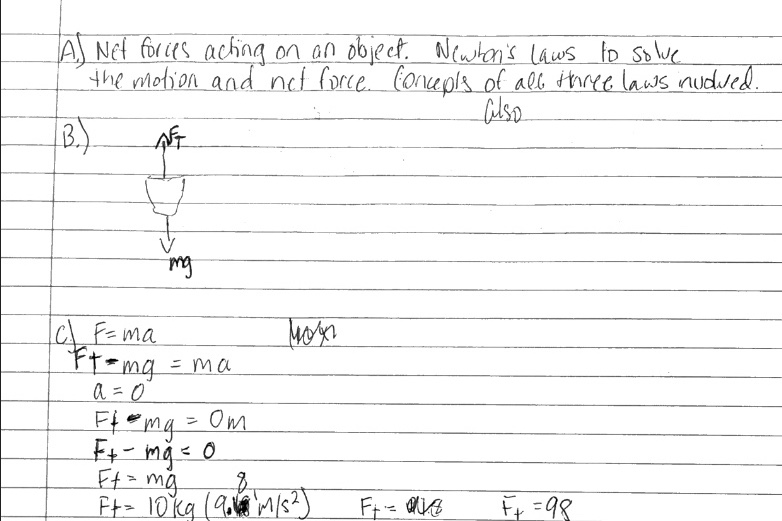 A.) Net forces acting on an object. Newton's laws to solve
the motion and net force. Concepts of all three laws nvolved.
also
B.)
FT
mg
C.) F=ma
Ft-mg = ma
a = 0
Ft-mg = 0m
Ft - mg = 0
Ft = mg
8
Ft = 10kg (9. m/s²) Ft = Ft = 98